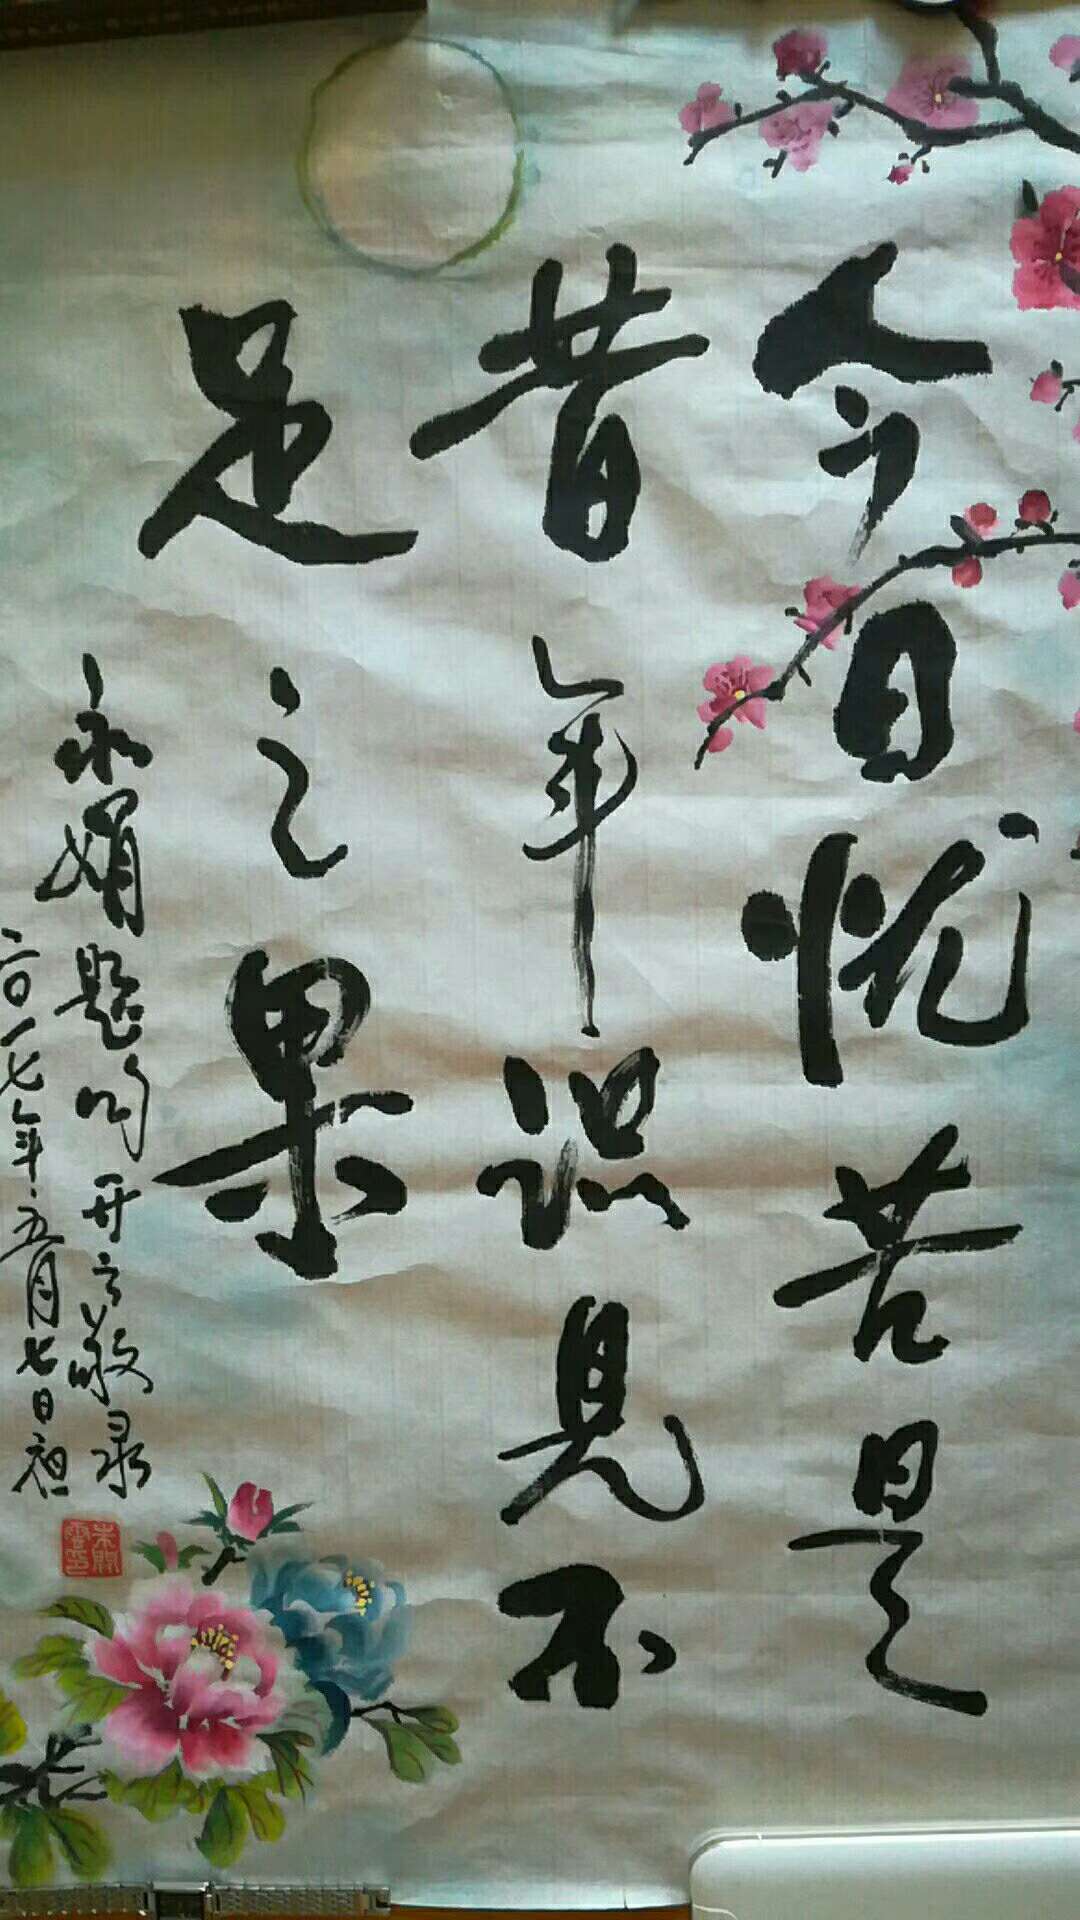 今日忧苦是
昔年识见不
足之果
永娟题的开云敬录
二〇一七年.五月七日
朱開雲印